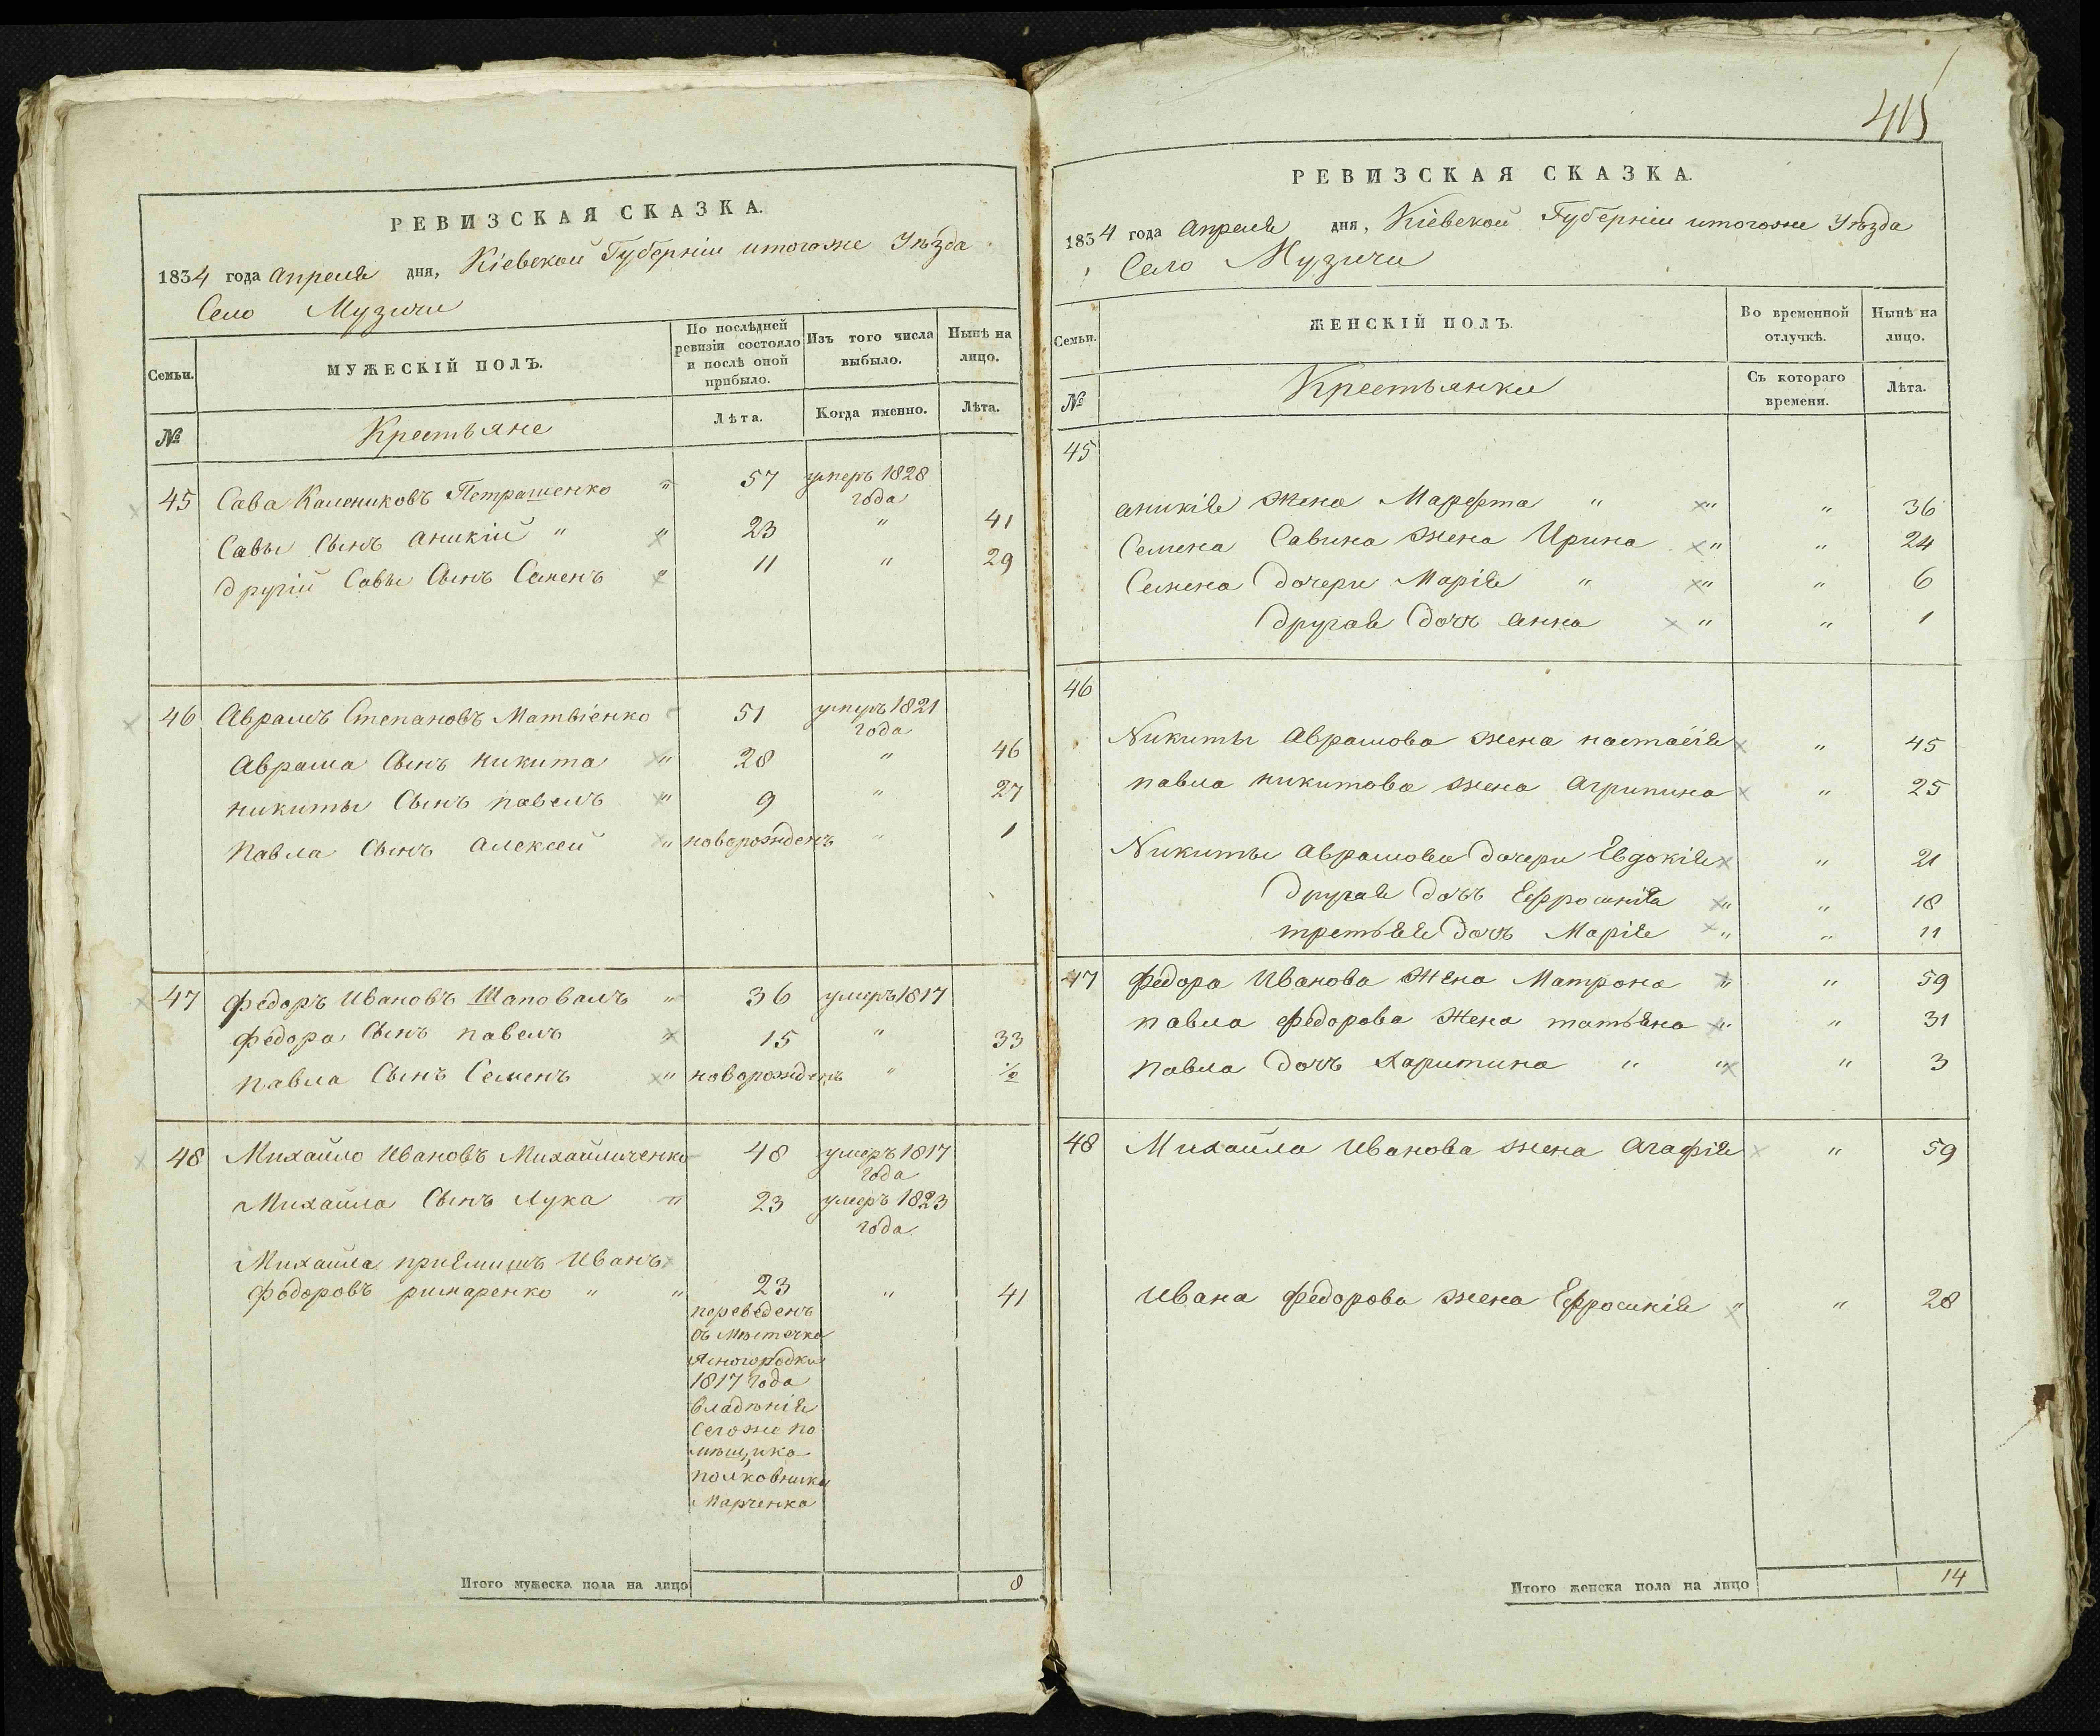 РЕВИЗСКАЯ СКАЗКА.
1834 года Апреля дня, Кіевской Губерніи итогоже Уѣзда
Село Музичи
Семьи.
МУЖЕСКІЙ ПОЛЪ.
По послѣдней
ревизіи состояло
и послѣ оной
прибыло.
Изъ того числа
выбыло.
Нынѣ на
лицо.
№
Крестьяне
Лѣта.
Когда именно.
Лѣта.
45 Сава Калениковъ Петрашенко " 57 умеръ 1828
года
Савы Сынъ Аникій " " 23 " 41
другій Савы Сынъ Семенъ " 11 " 29
46 Аврамъ Степановъ Матвіенко 51 умеръ 1821
года
Аврама Сынъ Никита " 28 " 46
Никиты Сынъ павелъ " 9 " 27
Павла Сынъ Алексей " новорожденъ " 1
47 Федоръ Ивановъ Шаповалъ " 36 умеръ 1817
Федора Сынъ павелъ " 15 " 33
павла Сынъ Семенъ " новорожденъ " ½
48 Михайло Ивановъ Михайличенко 48 умеръ 1817
года
Михайла Сынъ Лука " 23 умеръ 1823
года
Михайла приемишъ Иванъ
Федоровъ римаренко " " 23 " 41
переведенъ
съ Местечка
Ясногородки
1817 года
владѣнія
Сегоже по
мѣщика
полковника
Марченка
Итого мужеска пола на лицо 8
415
РЕВИЗСКАЯ СКАЗКА.
1834 года Апреля дня, Кіевской Губерніи итогоже Уѣзда
Село Музичи
Семьи.
ЖЕНСКІЙ ПОЛЪ.
Во временной
отлучкѣ.
Нынѣ на
лицо.
№
Крестьянки
Съ котораго
времени.
Лѣта.
45
Аникія Жена Марфта " " " 36
Семена Савина жена Ирина " " 24
Семена дочери Марія " " " 6
другая дочъ Анна " " 1
46
Никиты Аврамова жена настасія " 45
павла никитова жена Агрипина " 25
Никиты Аврамова дочери Евдокія " 21
другая дочъ Ефросинія " " 18
третья дочъ Марія " " 11
47 Федора Иванова Жена Матрона " " 59
павла федорова Жена татьяна " " 31
павла дочъ Харитина " " " 3
48 Михайла Иванова жена Агафія " 59
Ивана Федорова жена Ефросинія " " 28
Итого женска пола на лицо 14